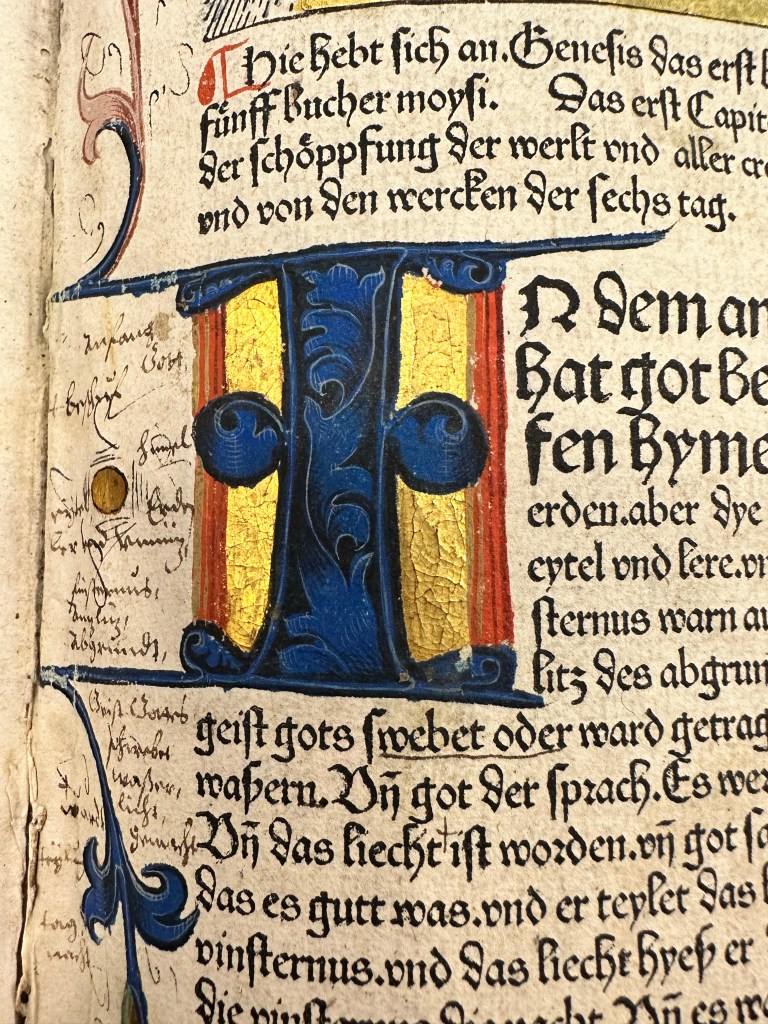 Hie hebt sich an. Genesis das erst b
fünff bucher moysi. Das erst Capit
der schöppfung der werlt vnd aller cre
vnd von den wercken der sechs tag.
IN dem an
hat got be
sen hyme
erden. aber dye
eytel vnd lere. vn
sternus warn au
litz des abgrun
geist gots swebet oder ward getrag
waßern. Vn̄ got der sprach. Es wer
Vn̄ das liecht ist worden. vn̄ got sa
das es gutt was. vnd er teylet das l
vinsternus. vnd das liecht hyeß er
die vinsternus die nacht. Vn̄ es wa
Anfang
Gott,
himel
Erden
finsternus,
Abgrundt,
Geist Gottes
schwebet
waßer,
liecht,
tag,
nacht